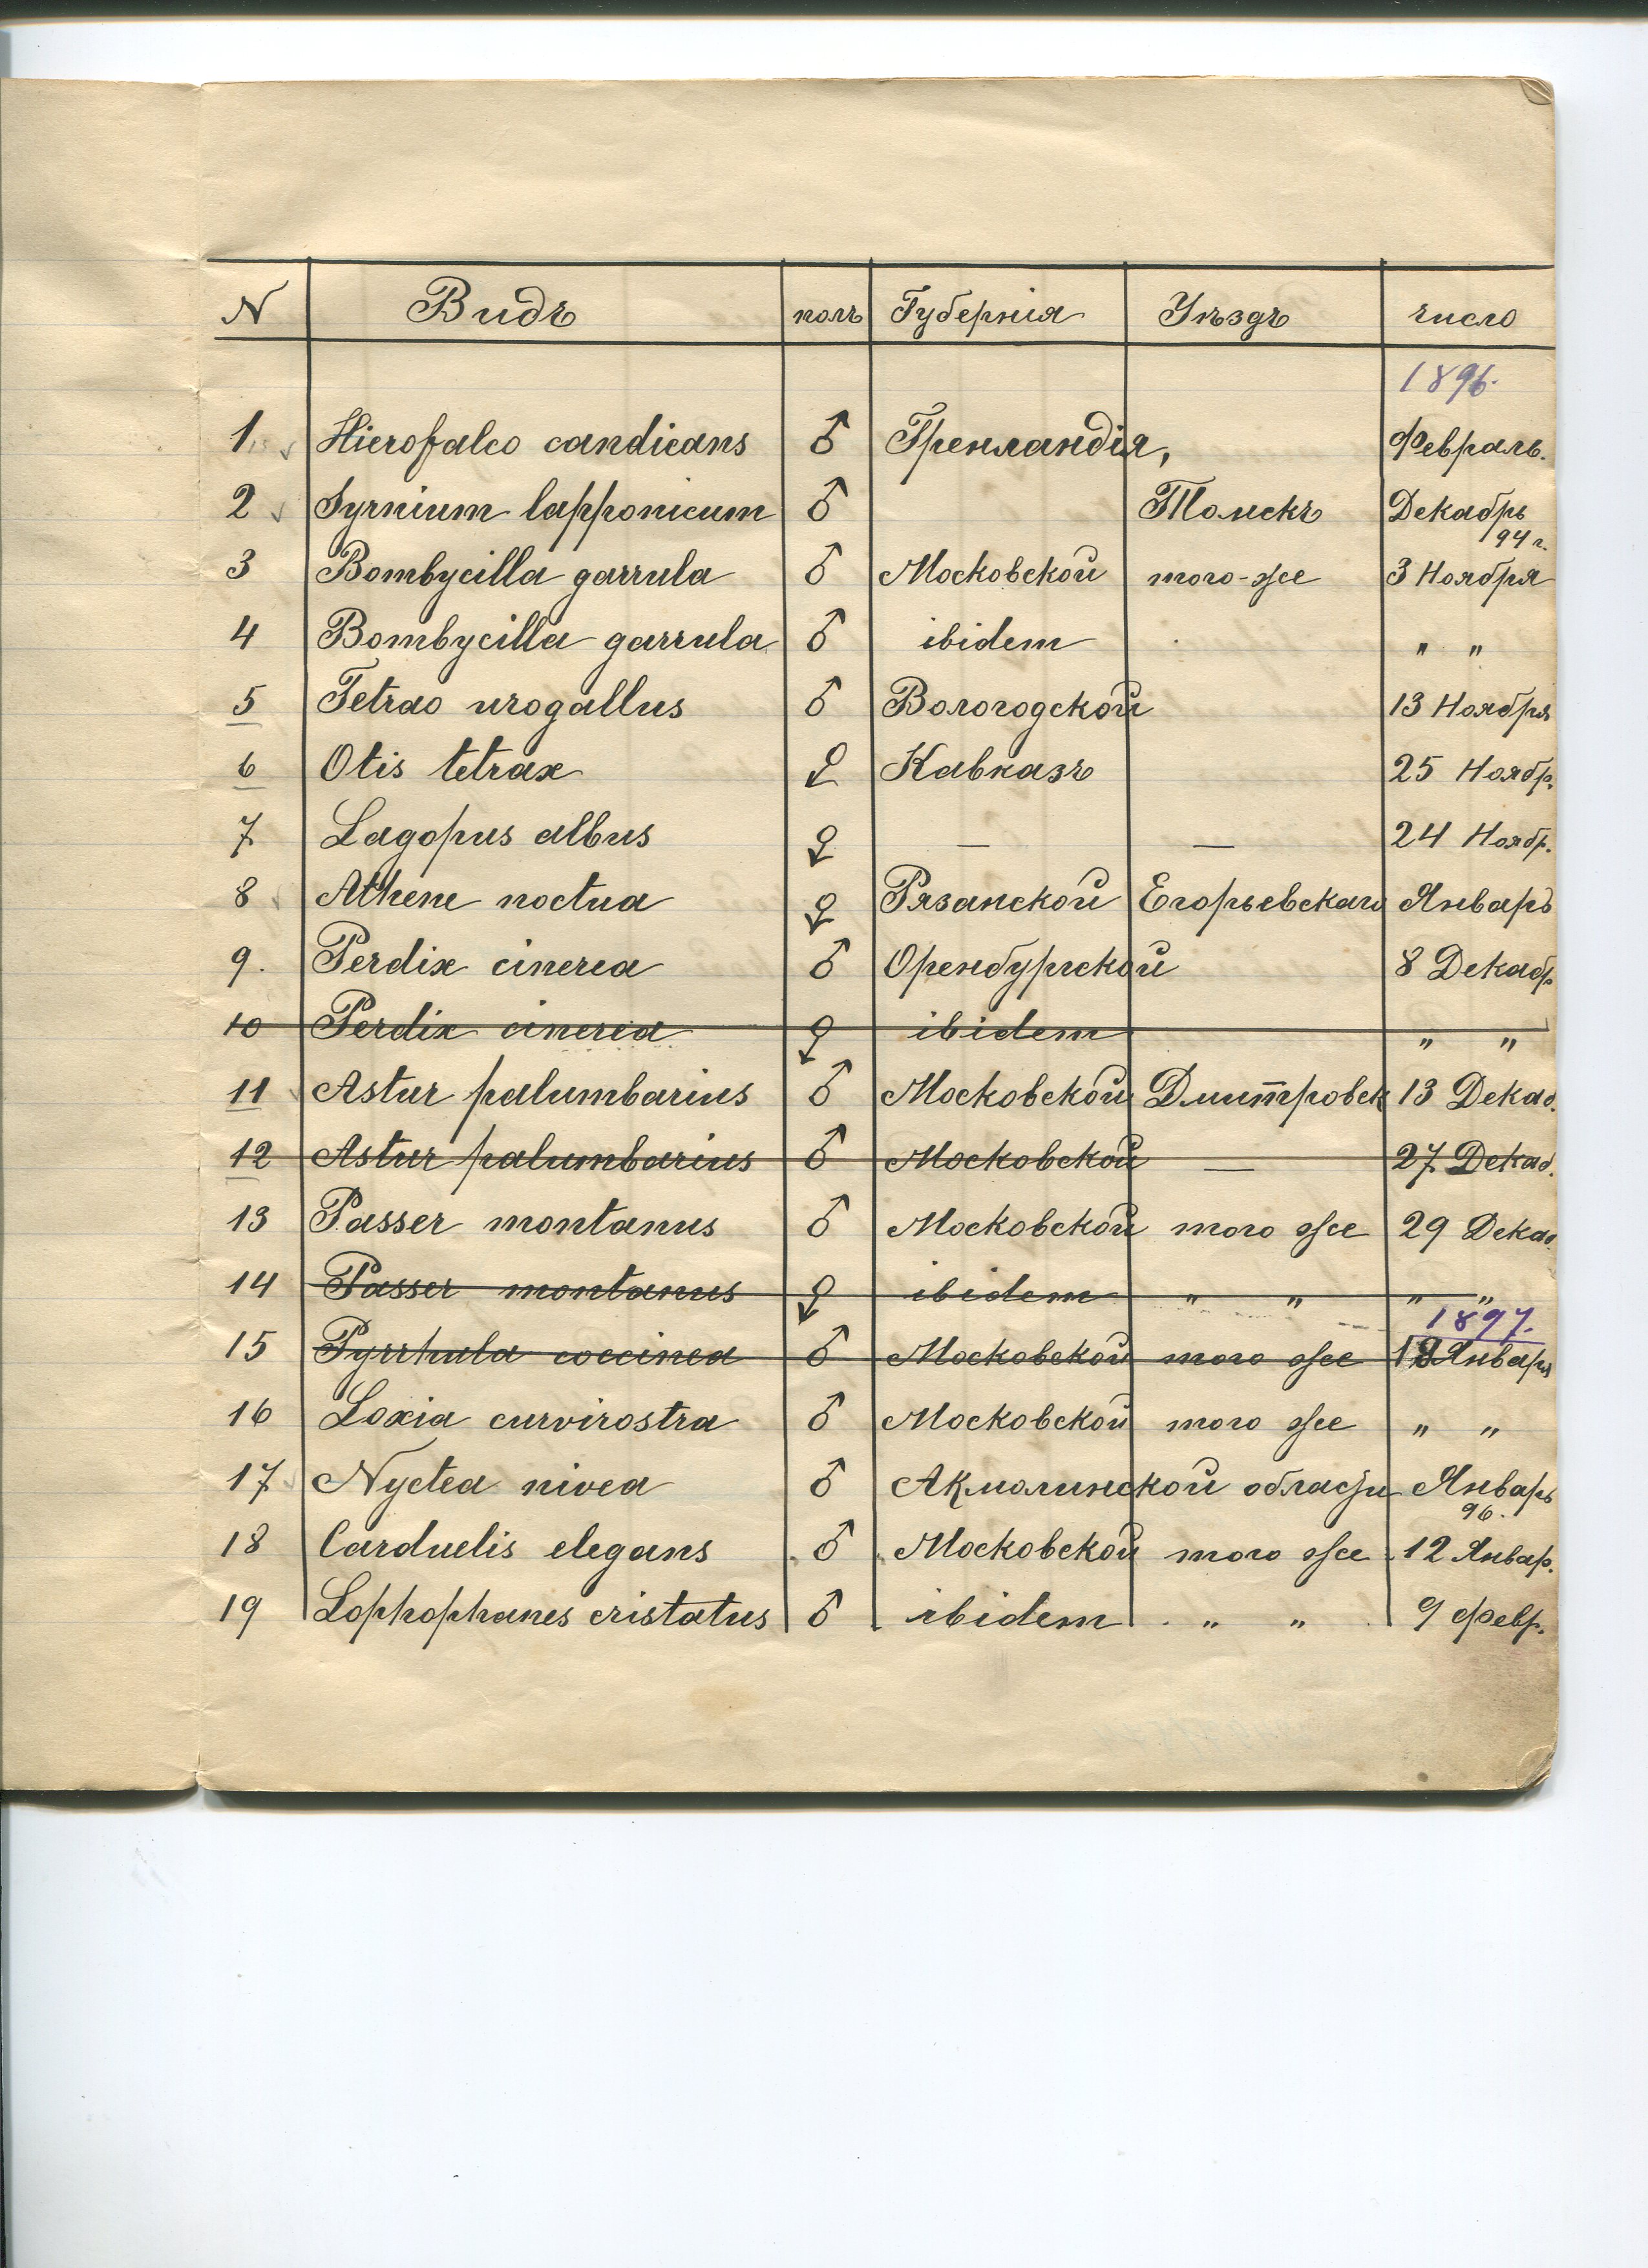 N Видъ полъ Губернія Уѣздъ число
1896.
1 Hierofalco candicans ♂ Гренландія, Февраль.
2 Syrnium lapponicum ♂ Томскъ Декабрь
94 г.
3 Bombycilla garrula ♂ Московской того-же 3 Ноября
4 Bombycilla garrula ♂ ibidem " "
5 Tetrao urogallus ♂ Вологодской 13 Ноября
6 Otis tetrax ♀ Кавказъ 25 Ноябр.
7 Lagopus albus ♀ — — 24 Ноябр.
8 Athene noctua ♀ Рязанской Егорьевскаго Январь
9. Perdix cinerea ♂ Оренбургской 8 Декабр
10 Perdix cinerea ♀ ibidem " "
11 Astur palumbarius ♂ Московской Дмитровск 13 Декаб.
12 Astur palumbarius ♂ Московской — 27 Декаб.
13 Passer montanus ♂ Московской того же 29 Декаб.
14 Passer montanus ♀ ibidem " " " "
1897.
15 Pyrrhula coccinea ♂ Московской того же Января
16 Loxia curvirostra ♂ Московской того же " "
17 Nyctea nivea ♂ Акмолинской области Январь
96.
18 Carduelis elegans ♂ Московской того же 12 Январ.
19 Lophophanes cristatus ♂ ibidem " " 9 Февр.